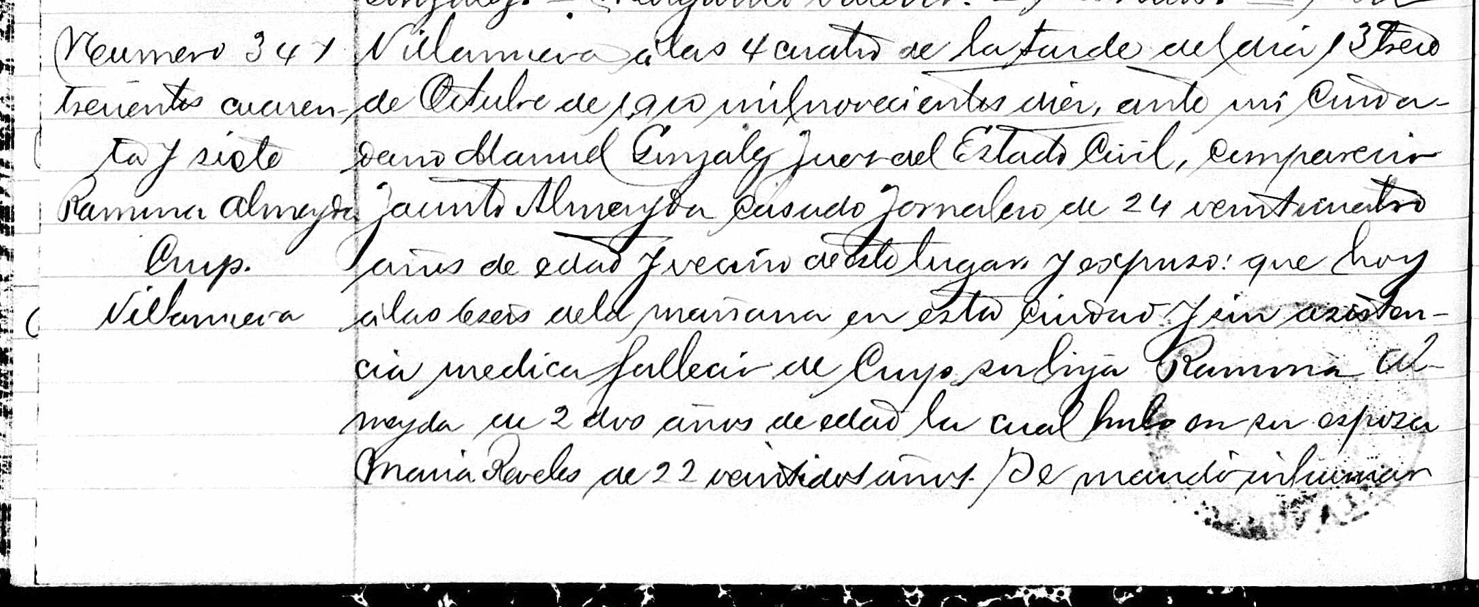 Numero 347
trecientos cuaren-
ta y siete
Ramona Almeyda
Crup.
Villanueva
Villanueva á las 4 cuatro de la tarde del dia 13 trece
de Octubre de 1910 mil novecientos diez, ante mi Ciuda-
dano Manuel González Juez del Estado Civil, comparecio
Jacinto Almeyda casado Jornalero de 24 veinticuatro
años de edad y vecino de este lugar y expuso: que hoy
á las 6 seis de la mañana en esta ciudad y sin asisten-
cia medica falleció de Crup su hija Ramona Al-
meyda de 2 dos años de edad la cual hubo en su esposa
Maria Reveles de 22 veintidos años. Se mandó inhumar